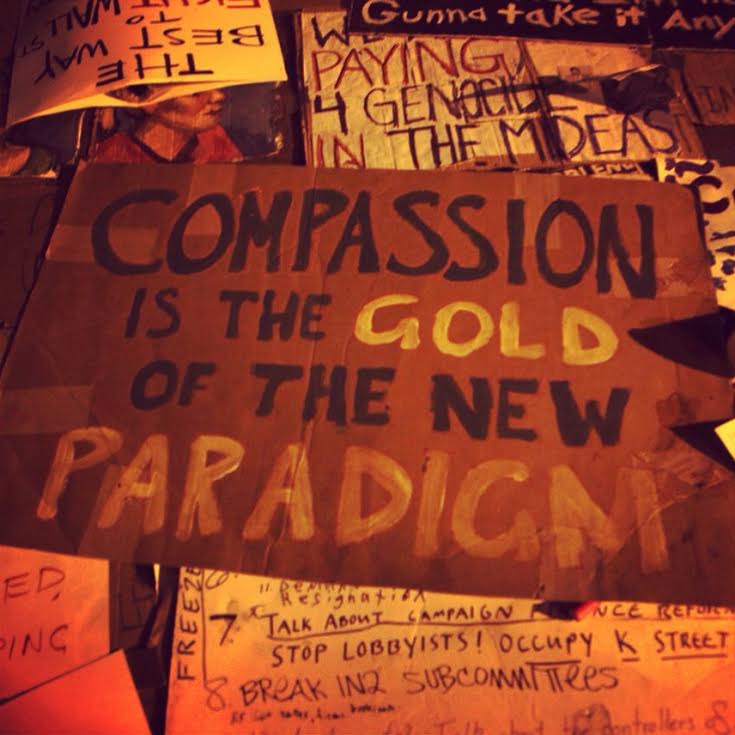 THE WAY
BEST WAY
TO
WALL ST
Gunna take it Any
PAYING
4 GENOCIDE
IN THE MIDEAST
COMPASSION
IS THE GOLD
OF THE NEW
PARADIGM
ED,
PING
FREEZE
Resignation
7. TALK ABOUT CAMPAIGN NCE REFORM
STOP LOBBYISTS! OCCUPY K STREET
8. BREAK IN2 SUBCOMMITTEES